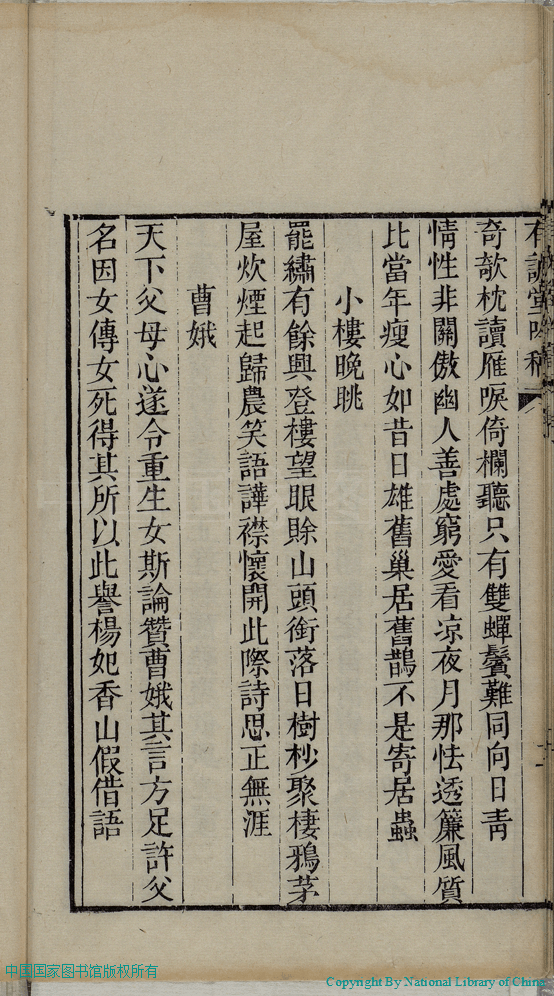 奇欹枕讀雁唳倚欄聽只有雙蟬鬢難同向日青
情性非關傲幽人善處窮愛看凉夜月那怯透簾風質
比當年瘦心如昔日雄舊巢居舊鵲不是寄居蟲
小樓晚眺
罷繡有餘興登樓望眼賒山頭銜落日樹杪聚棲鴉茅
屋炊煙起歸農笑語譁襟懷開此際詩思正無涯
曹娥
天下父母心遂令重生女斯論贊曹娥其言方足許父
名因女傳女死得其所以此譽楊妃香山假借語
中国国家图书馆版权所有
Copyright By National Library of China